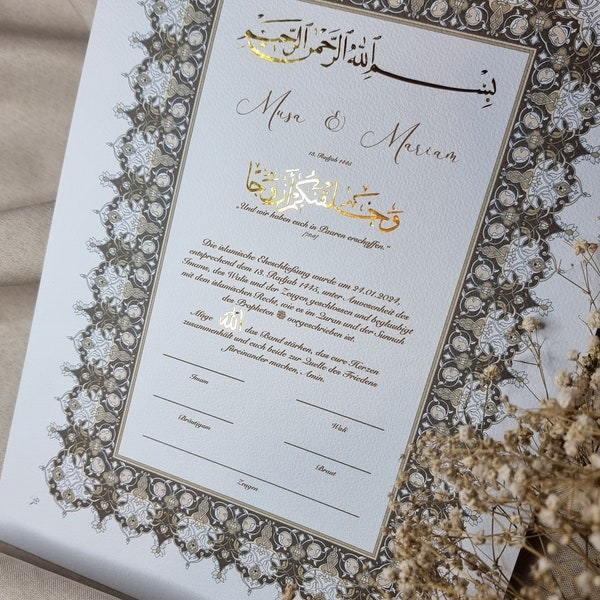 بسم الله الرحمن الرحيم
Musa & Mariam
13. Radjab 1445
وَخَلَقْنَكُمْ أَزْوَجًا
„Und wir haben euch in Paaren erschaffen."
[78:8]
Die islamische Eheschließung wurde am 24.01.2024,
entsprechend dem 13. Radjab 1445, unter Anwesenheit des
Imams, des Walis und der Zeugen geschlossen und beglaubigt
mit dem islamischen Recht, wie es in Quran und der Sunnah
des Propheten ﷺ vorgeschrieben ist.
Möge الله das Band stärken, das eure Herzen
zusammenhält und euch beide zur Quelle des Friedens
füreinander machen, Amin.
Imam
Wali
Bräutigam
Braut
Zeugen